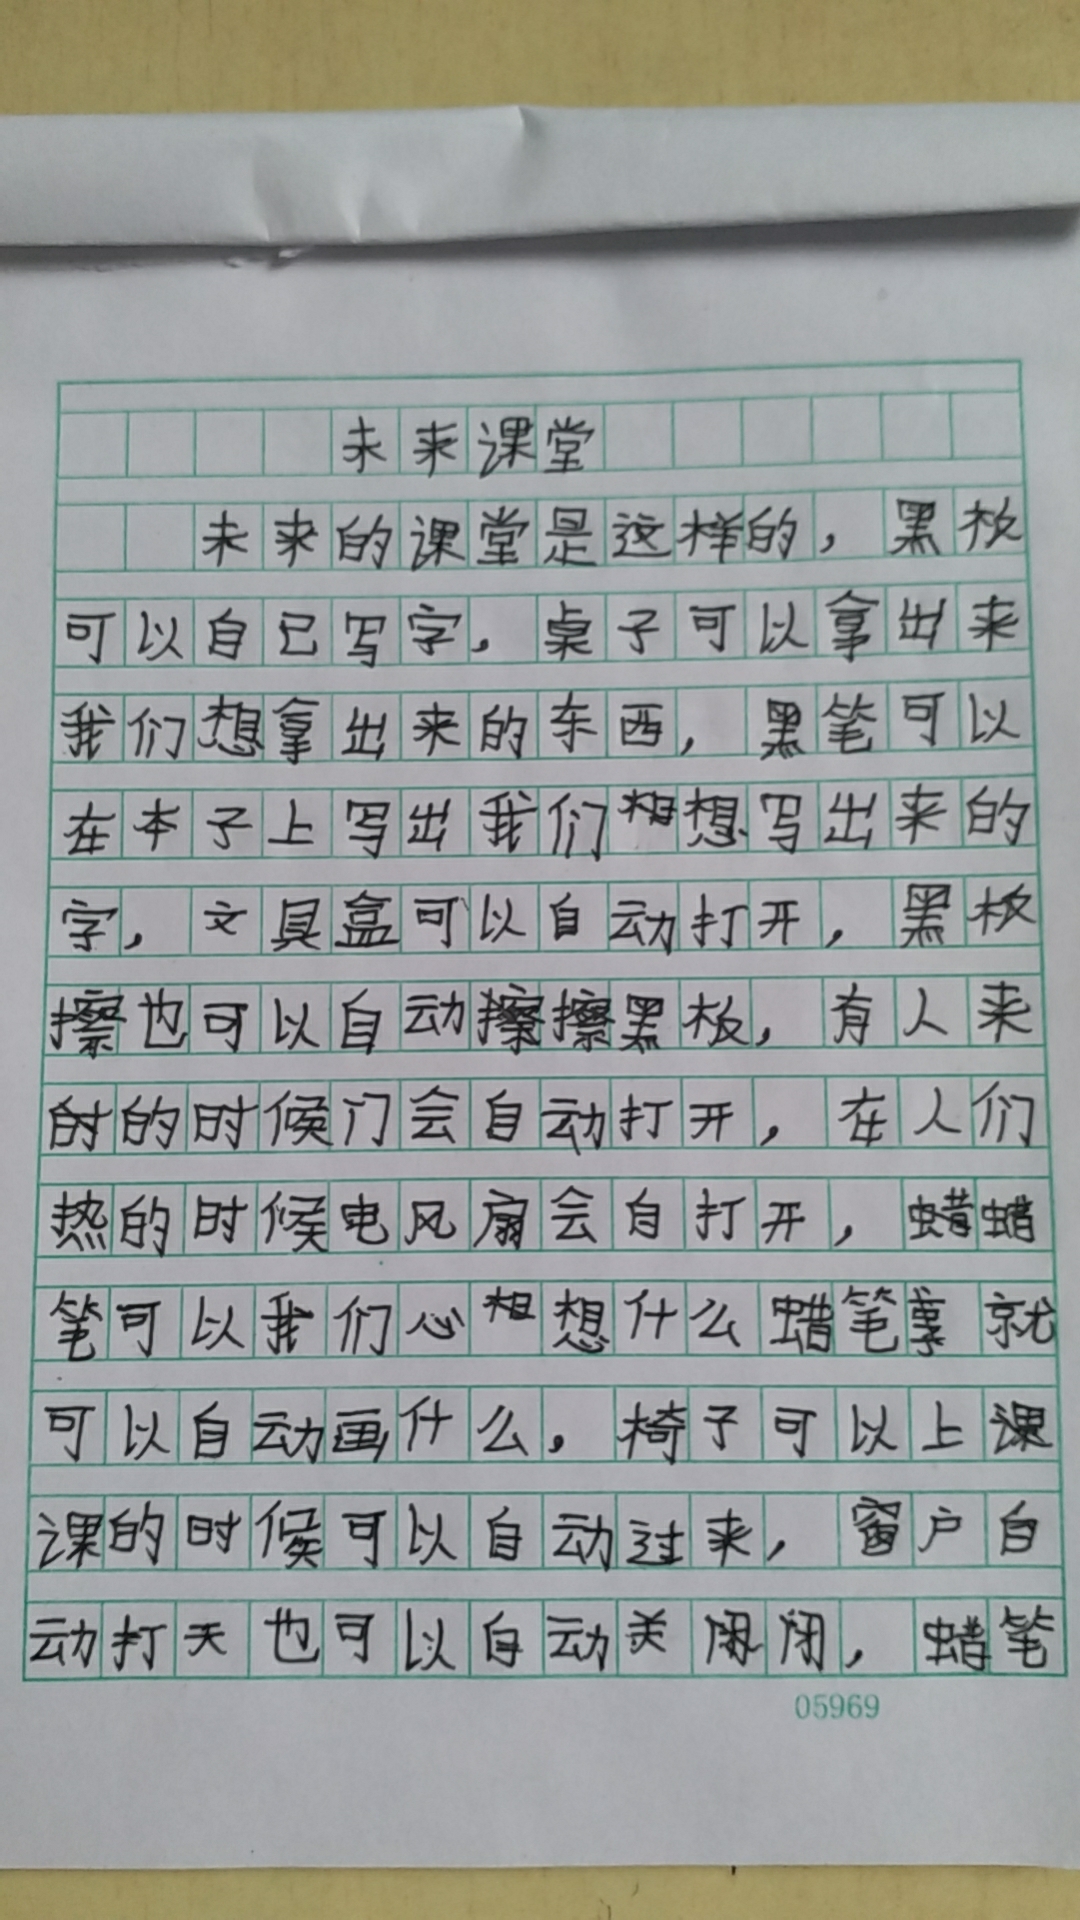 未来课堂
未来的课堂是这样的，黑板
可以自己写字，桌子可以拿出来
我们想拿出来的东西，黑笔可以
在本子上写出我们相想写出来的
字，文具盒可以自动打开，黑板
擦也可以自动擦擦黑板，有人来
的时候门会自动打开，在人们
热的时候电风扇会自打开，蜡蜡
笔可以我们心相想什么蜡笔就
可以自动画什么，椅子可以上课
课的时候可以自动过来，窗户自
动打天也可以自动关闭，蜡笔
05969